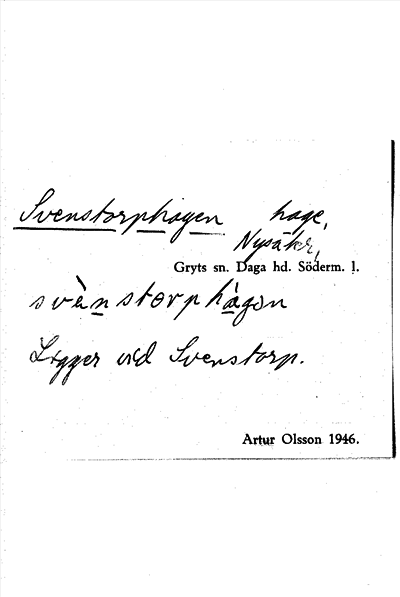 Svenstorphagen hage,
Nysäter,
Gryts sn. Daga hd. Söderm. l.
svènstorphàgen
Ligger vid Svenstorp.
Artur Olsson 1946.